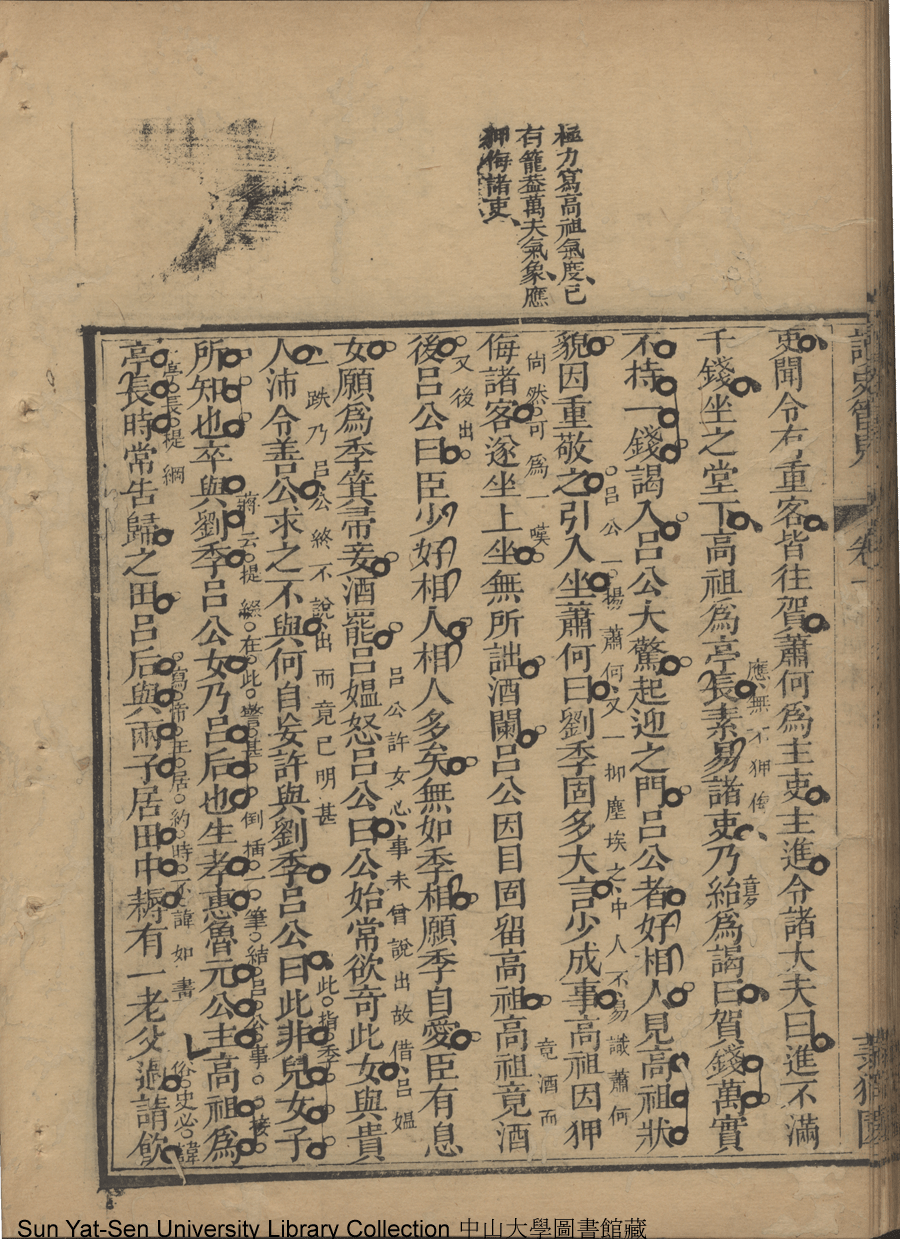 極力寫高祖氣度已
有籠葢萬夫氣象應
狎侮諸吏
吏聞令有重客皆往賀蕭何爲主吏主進令諸大夫曰進不滿
千錢坐之堂下高祖爲亭長素易諸吏乃紿爲謁曰賀錢萬實
應無不狎侮
不持一錢謁入呂公大驚起迎之門呂公者好相人見高祖狀
呂公一揚蕭何又一抑塵埃之中人不易識蕭何
貌因重敬之引入坐蕭何曰劉季固多大言少成事高祖因狎
尙然可爲一嘆
竟酒而
侮諸客遂坐上坐無所詘酒闌呂公因目固留高祖高祖竟酒
又後出
後呂公曰臣少好相人相人多矣無如季相願季自愛臣有息
呂公許女心事未曾說出故借呂媼
女願爲季箕帚妾酒罷呂媼怒呂公曰公始常欲奇此女與貴
一跌乃呂公終不說出而竟已明甚
此指季
人沛令善公求之不與何自妄許與劉季呂公曰此非兒女子
蔣云提綴在此警甚
倒插一筆結呂公事接
所知也卒與劉季呂公女乃呂后也生孝惠魯元公主高祖爲
亭長提綱
寫帝王居約時不諱如畫
俗史必諱
亭長時常告歸之田呂后與兩子居田中耨有一老父過請飲
Sun Yat-Sen University Library Collection 中山大學圖書館藏